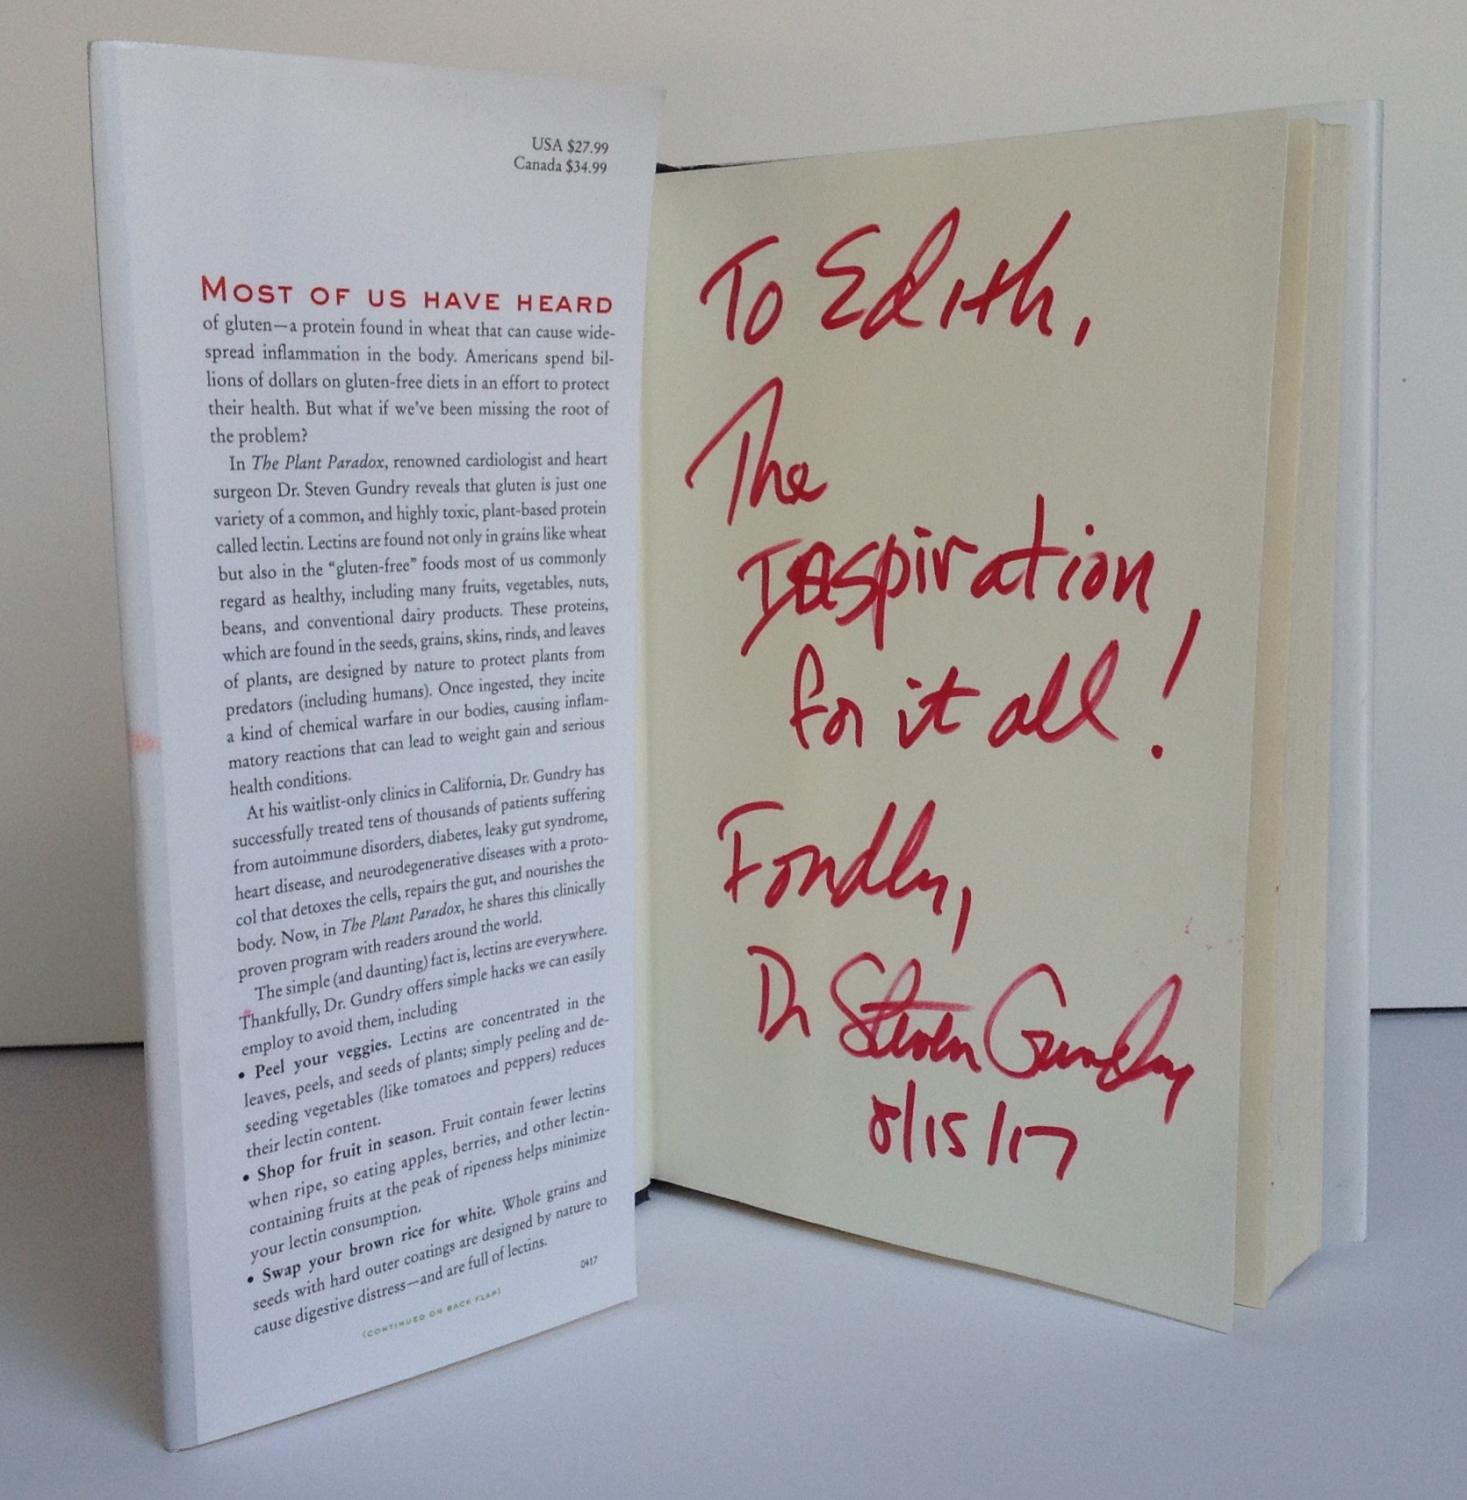 USA $27.99
Canada $34.99
MOST OF US HAVE HEARD
of gluten—a protein found in wheat that can cause wide-
spread inflammation in the body. Americans spend bil-
lions of dollars on gluten-free diets in an effort to protect
their health. But what if we've been missing the root of
the problem?
In The Plant Paradox, renowned cardiologist and heart
surgeon Dr. Steven Gundry reveals that gluten is just one
variety of a common, and highly toxic, plant-based protein
called lectin. Lectins are found not only in grains like wheat
but also in the "gluten-free" foods most of us commonly
regard as healthy, including many fruits, vegetables, nuts,
beans, and conventional dairy products. These proteins,
which are found in the seeds, grains, skins, rinds, and leaves
of plants, are designed by nature to protect plants from
predators (including humans). Once ingested, they incite
a kind of chemical warfare in our bodies, causing inflam-
matory reactions that can lead to weight gain and serious
health conditions.
At his waitlist-only clinics in California, Dr. Gundry has
successfully treated tens of thousands of patients suffering
from autoimmune disorders, diabetes, leaky gut syndrome,
heart disease, and neurodegenerative diseases with a proto-
col that detoxes the cells, repairs the gut, and nourishes the
body. Now, in The Plant Paradox, he shares this clinically
proven program with readers around the world.
The simple (and daunting) fact is, lectins are everywhere.
Thankfully, Dr. Gundry offers simple hacks we can easily
employ to avoid them, including
• Peel your veggies. Lectins are concentrated in the
leaves, peels, and seeds of plants; simply peeling and de-
seeding vegetables (like tomatoes and peppers) reduces
their lectin content.
• Shop for fruit in season. Fruit contain fewer lectins
when ripe, so eating apples, berries, and other lectin-
containing fruits at the peak of ripeness helps minimize
your lectin consumption.
• Swap your brown rice for white. Whole grains and
seeds with hard outer coatings are designed by nature to
cause digestive distress—and are full of lectins.
0417
(CONTINUED ON BACK FLAP)
To Edith,
The
Inspiration
for it all!
Fondly,
Dr Steven Gundry
8/15/17